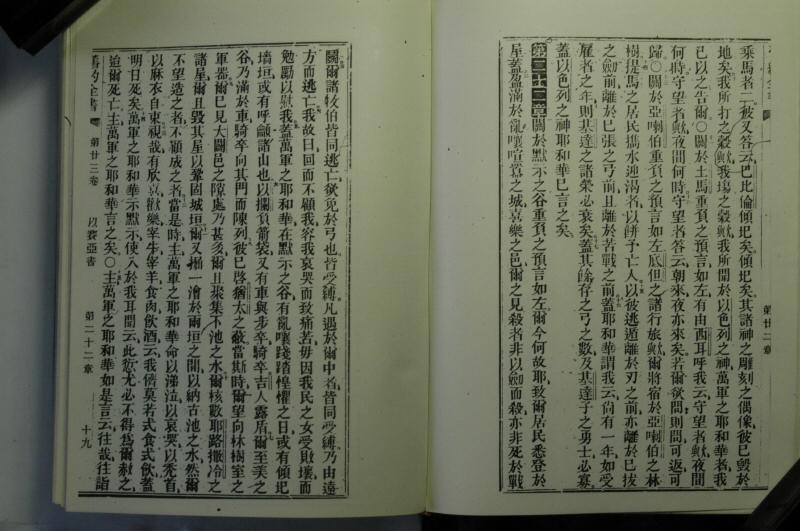 乘馬者二彼又答云巴比倫傾圮矣傾圮矣其諸神之雕刻之偶像彼已毀於
地矣我所打之穀歟我塲之穀歟我所聞於以色列之神萬軍之耶和華者我
已以之告爾○關於土馬重負之預言如左有由西耳呼我云守望者歟夜間
何時守望者歟夜間何時守望者答云朝來夜亦來矣若爾欲問則問可返可
歸○關於亞喇伯重負之預言如左底但之諸行旅歟爾將宿於亞喇伯之林
樹提馬之居民攜水迎渴者以餅予亡人以彼逃遁離於刃之前亦離於已拔
之劍前離於已張之弓前且離於苦戰之前蓋耶和華謂我云尙有一年如受
雇者之年則基達之諸榮必衰矣蓋其餘存之弓之數及基達子之勇士必寡
蓋以色列之神耶和華已言之矣
第二十二章關於默示之谷重負之預言如左爾今何故耶致爾居民悉登於
屋蓋盈滿於亂嚷喧囂之城喜樂之邑爾之見殺者非以劍而殺亦非死於戰
第廿二章
鬬爾諸牧伯皆同逃亡欲免於弓也皆受縛凡遇於爾中者皆同受縛乃由遠
方而逃亡我故曰回而不顧我容我哀哭而致痛若毋因我民之女受敗壞而
勉勵以慰我蓋萬軍之耶和華在默示之谷有亂嚷踐踏惶懼之日或有傾圮
墻垣或有呼籲諸山也以攔負箭袋又有車與步卒騎卒吉人露盾爾至美之
谷乃滿於車騎卒向其門而陳列彼已啓猶太之蔽當斯時爾望向林樹室之
軍器爾已見大闢邑之隙處乃甚多爾且聚集下池之水爾核數耶路撒冷之
諸屋爾且毀其屋以鞏固城垣爾又掘一澮於兩垣之間以納古池之水然爾
不望造之者不顧成之者當是時主萬軍之耶和華命以涕泣以哀哭以禿首
以麻衣自東視哉有欣喜歡樂宰牛宰羊食肉飲酒云我儕莫若式食式飲蓋
明日死矣萬軍之耶和華示默示使入於我耳聞云此愆尤必不得爲爾赦之
迨爾死亡主萬軍之耶和華言之矣○主萬軍之耶和華如是言云往哉往詣
舊約全書
第廿三卷
以賽亞書
第二十二章
十九